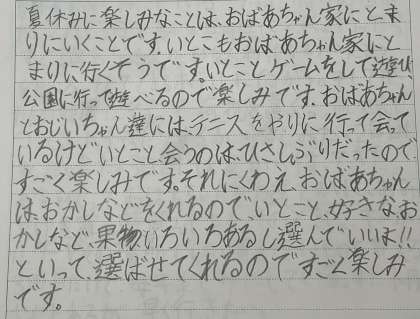 夏休みに楽しみなことは、おばあちゃん家にとま
りにいくことです。いとこもおばあちゃん家にと
まりに行くそうです。いとことゲームをして遊び
公園に行って遊べるので楽しみです。おばあちゃん
とおじいちゃん達には、テニスをやりに行って会って
いるけどいとこと、会うのは、ひさしぶりだったので
すごく楽しみです。それにくわえ、おばあちゃん
は、おかしなどをくれるので、いとこと、好きなお
かしなど、果物、いろいろあるし選んでいいよ!!
といって、選ばせてくれるのですごく楽しみ
です。